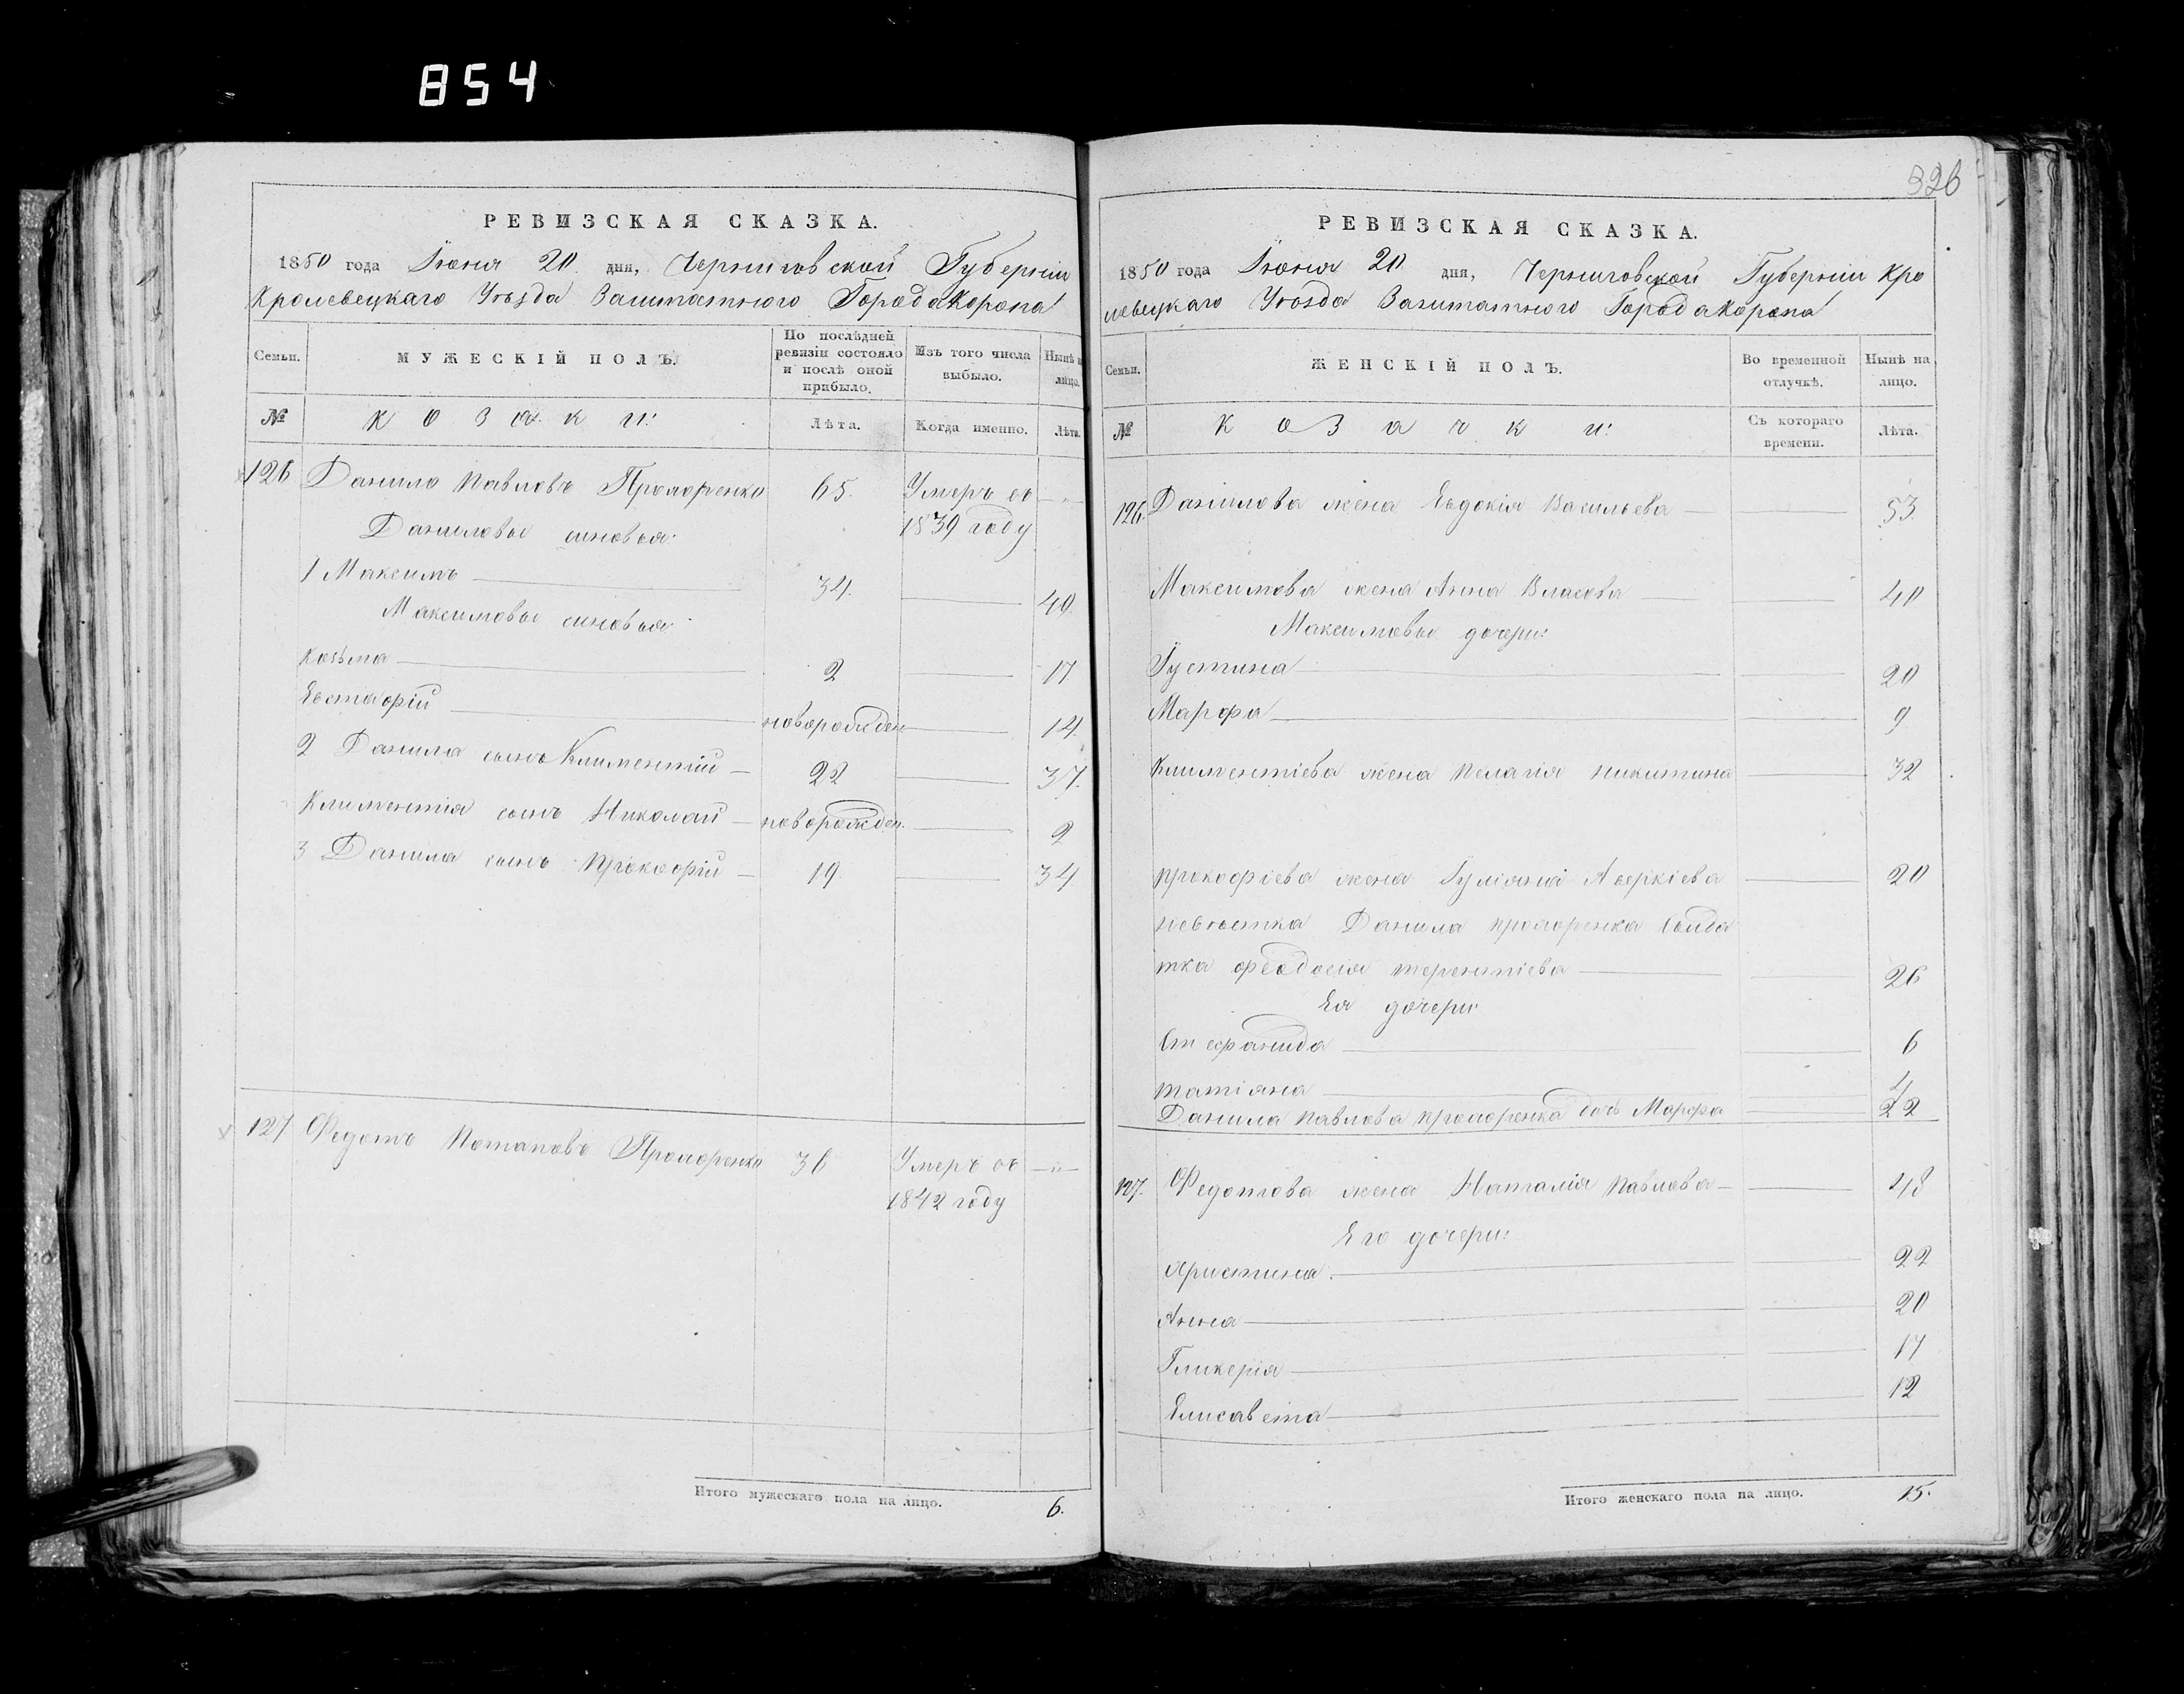 854
РЕВИЗСКАЯ СКАЗКА.
1850 года Іюня 20 дня, Черниговской Губерніи
Кролевецкаго Уѣзда Заштатного Города Коропа
Семьи.
МУЖЕСКІЙ ПОЛЪ.
По послѣдней ревизіи состояло и послѣ оной прибыло.
Изъ того числа выбыло.
Нынѣ на лицо.
№
козаки:
Лѣта.
Когда именно.
Лѣта.
126 Данило Павловъ Прохоренко 65. Умеръ въ — „ —
Даниловы синовья: 1839 году
1 Максимъ 34. 49.
Максимовы синовья:
Козьма 2 17
Евстафій новорожден 14.
2 Данила сынъ Климентій 22 37.
Климентія сынъ Николай новорожден. 2
3 Данила сынъ Прокофій 19. 34
127 Федотъ Потаповъ Прохоренко 36 Умеръ въ — „ —
1842 году
Итого мужескаго пола на лицо. 6.
326
РЕВИЗСКАЯ СКАЗКА.
1850 года Іюня 20 дня, Черниговской Губерніи Кро
левецкаго Уѣзда Заштатного Города Коропа
Семьи.
ЖЕНСКІЙ ПОЛЪ.
Во временной отлучкѣ.
Нынѣ на лицо.
№
козачки:
Съ котораго времени.
Лѣта.
126. Данилова жена Евдокія Васильева 53.
Максимова жена Анна Власова 40
Максимовы дочери:
Іустина 20
Марфа 9
Климентіева жена Пелагія Никитина 32
Прокофіева жена Іуліяна Аверкіева 20
Невѣстка Данила Прохоренка Салда
тка Феодосія Терентіева 26
Ея дочери:
Стефанида 6
Татіяна 4
Данила Павлова Прохоренка дочь Марфа 22
127. Федотова жена Наталія Павлова 48
Его дочери:
Христина. 22
Анна 20
Гликерія 17
Елисавета 12
Итого женскаго пола на лицо. 15.